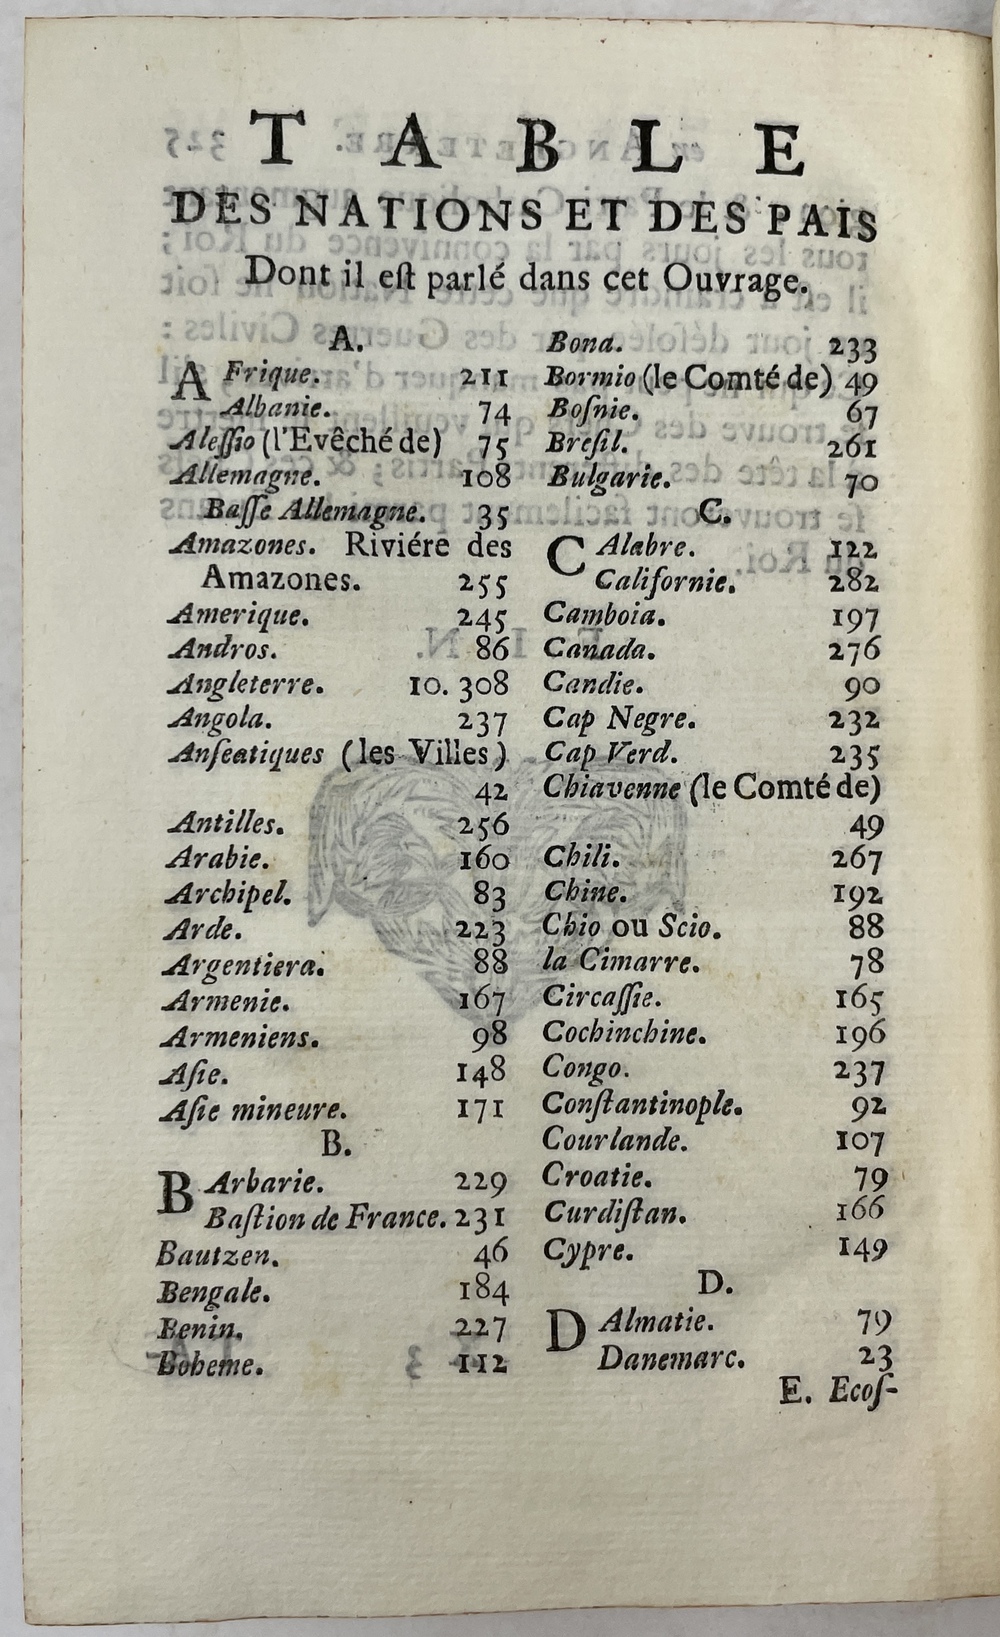 TABLE
DES NATIONS ET DES PAIS
Dont il eſt parlé dans cet Ouvrage.
A.
AFrique. 211
Albanie. 74
Aleſſio (l'Evêché de) 75
Allemagne. 108
Baſſe Allemagne. 35
Amazones. Riviére des
Amazones. 255
Amerique. 245
Andros. 86
Angleterre. 10. 308
Angola. 237
Anſeatiques (les Villes)
42
Antilles. 256
Arabie. 160
Archipel. 83
Arde. 223
Argentiera. 88
Armenie. 167
Armeniens. 98
Aſie. 148
Aſie mineure. 171
B.
BArbarie. 229
Baſtion de France. 231
Bautzen. 46
Bengale. 184
Benin. 227
Boheme. 112
Bona. 233
Bormio (le Comté de) 49
Boſnie. 67
Breſil. 261
Bulgarie. 70
C.
CAlabre. 122
Californie. 282
Camboia. 197
Canada. 276
Candie. 90
Cap Negre. 232
Cap Verd. 235
Chiavenne (le Comté de)
49
Chili. 267
Chine. 192
Chio ou Scio. 88
la Cimarre. 78
Circaſſie. 165
Cochinchine. 196
Congo. 237
Conſtantinople. 92
Courlande. 107
Croatie. 79
Curdiſtan. 166
Cypre. 149
D.
DAlmatie. 79
Danemarc. 23
E. Ecoſ-